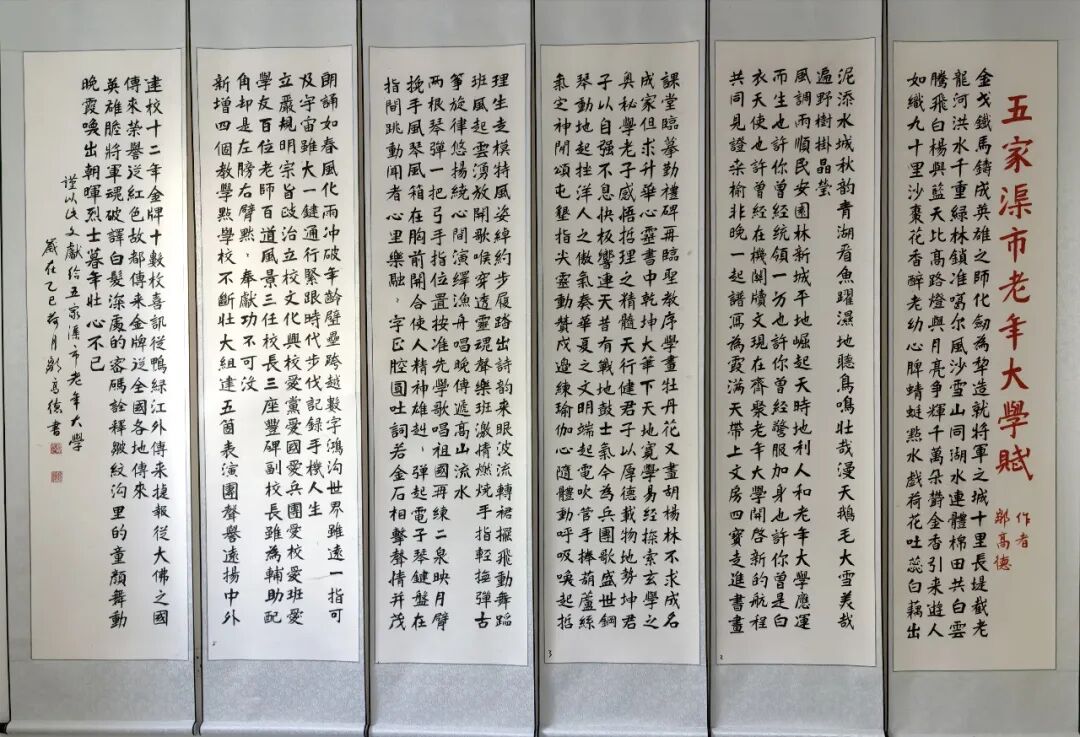 五家渠市老年大學賦
作者
鄭高德
金戈鐵馬鑄成英雄之師化劍為犁造就將軍之城十里長堤截老
龍河洪水千重綠林鎖准噶尔風沙雪山同湖水連體棉田共白雲
騰飛白楊與藍天比高路燈與月亮爭輝千萬朵欝金香引來遊人
如織九十里沙棗花香醉老幼心脾蜻蜓點水戲荷花吐蕊白藕出
泥添水城秋韵青湖看魚躍濕地聽鳥鳴壯哉漫天鵝毛大雪美哉
遍野樹掛晶瑩
風調雨順民安園林新城平地崛起天時地利人和老年大學應運
而生也許你曾經統領一方也許你曾經警服加身也許你曾是白
衣天使也許曾經在機關牘文現在齊聚老年大學開啓新的航程
共同見證桑榆非晚一起譜寫為霞滿天帶上文房四寳走進書畫
課堂臨摹勤禮碑再臨聖教序學畫牡丹花又畫胡楊林不求成名
成家但求升華心靈書中乾坤大筆下天地寬學易經探索玄學之
奥秘學老子感悟哲理之精髓天行健君子以厚德載物地勢坤君
子以自强不息快板響連天昔有戰地鼓士氣今為兵團歌盛世鋼
琴動地起拄洋人之傲氣奏華夏之文明端起電吹管手捧葫蘆絲
氣定神閑頌屯墾人指尖靈動贊戍邊練瑜伽心隨體動呼吸喚起哲
理生走模特風姿綽約步履踏出詩韵来眼波流轉裙擺飛動舞蹈
班風起雲湧放開歌喉穿透靈魂聲樂班激情燃烧手指輕撫彈古
筝旋律悠揚繞心間演繹漁舟唱晚傳遞高山流水
两根琴弹一把弓手指位置按准先學歌唱祖國再練二泉映月臂
挽手風琴風箱在胸前開合使人精神雄赳，彈起電子琴鍵盤在
指間跳動聞者心里樂融，字正腔圓吐詞若金石相擊聲情并茂
朗誦如春風化雨冲破年齡壁壘跨越數字鴻沟世界雖遠一指可
及宇宙雖大一鍵通行緊跟時代步伐記録手機人生
立嚴規明宗旨政治立校文化興校愛黨愛國愛兵團愛校愛班愛
學友百位老師百道風景三任校長三座豐碑副校長雖為輔助配
角却是左膀右臂點，奉獻功不可没
新增四個教學點學校不斷壯大組建五箇表演團聲譽遠揚中外
建校十二年金牌十數枚喜訊從鴨緑江外傳来捷報從大佛之國
傳來榮譽從紅色故都傳来金牌從全國各地傳來
英雄膽將軍魂破譯白髪深處的密碼詮釋皺紋沟里的童顏舞動
晚霞喚出朝暉烈士暮年壯心不已
謹以此文獻给五家渠市老年大學
歲在乙巳荷月鄭高德書